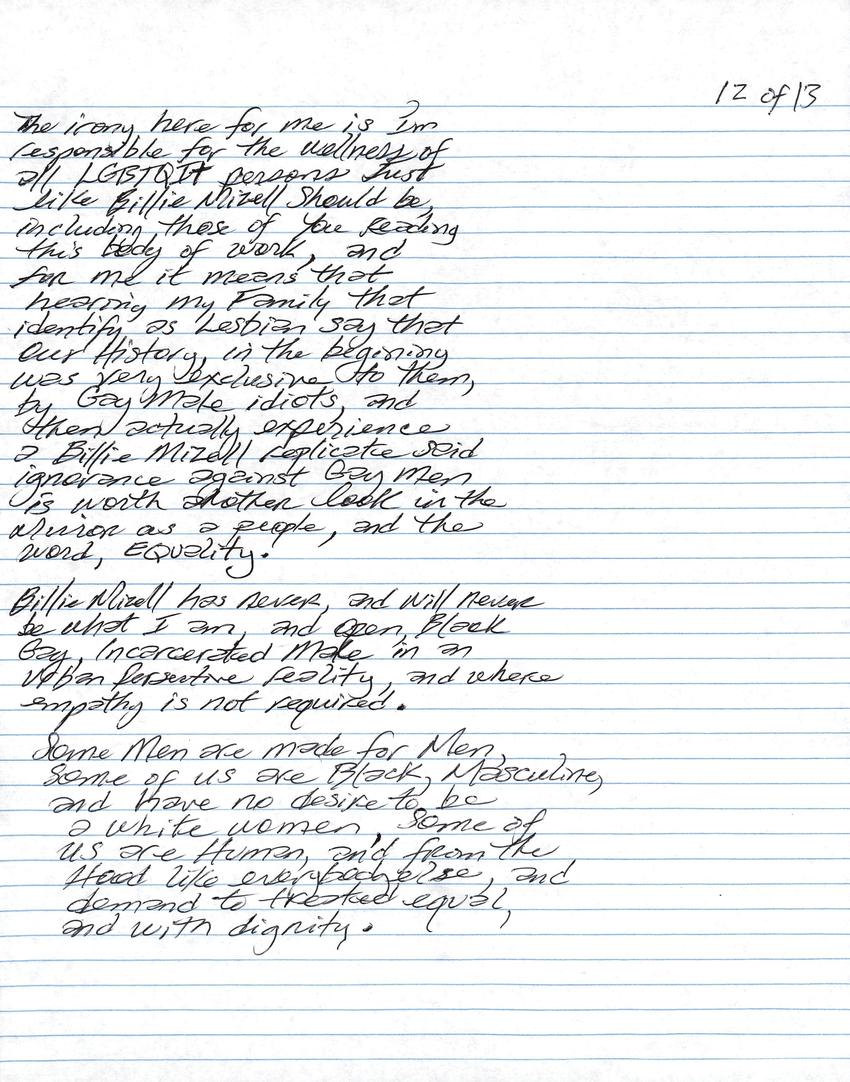 12 of 13
The irony here for me is I'm
responsible for the wellness of
all LGBTQI+ persons Just
like Billie Mizell Should be,
including those of you Reading
this body of work, and
for me it means that
hearing my Family that
identify as Lesbian say that
Our History, in the begining
was very exclusive to them,
by Gay Male idiots, and
then actually experience
a Billie Mizell replicate said
ignorance against Gay men
is worth another look in the
Mirror as a people, and the
word, EQUality.
Billie Mizell has never, and will never
be what I am, and open, Black
Gay, Incarcerated Male in an
Urban Perspective reality, and where
empathy is not required.
Some Men are made for Men,
Some of us are Black, Masculine,
and have no desire to be
a white women, Some of
us are Human, and from the
Hood like everybody else, and
demand to treated equal,
and with dignity.